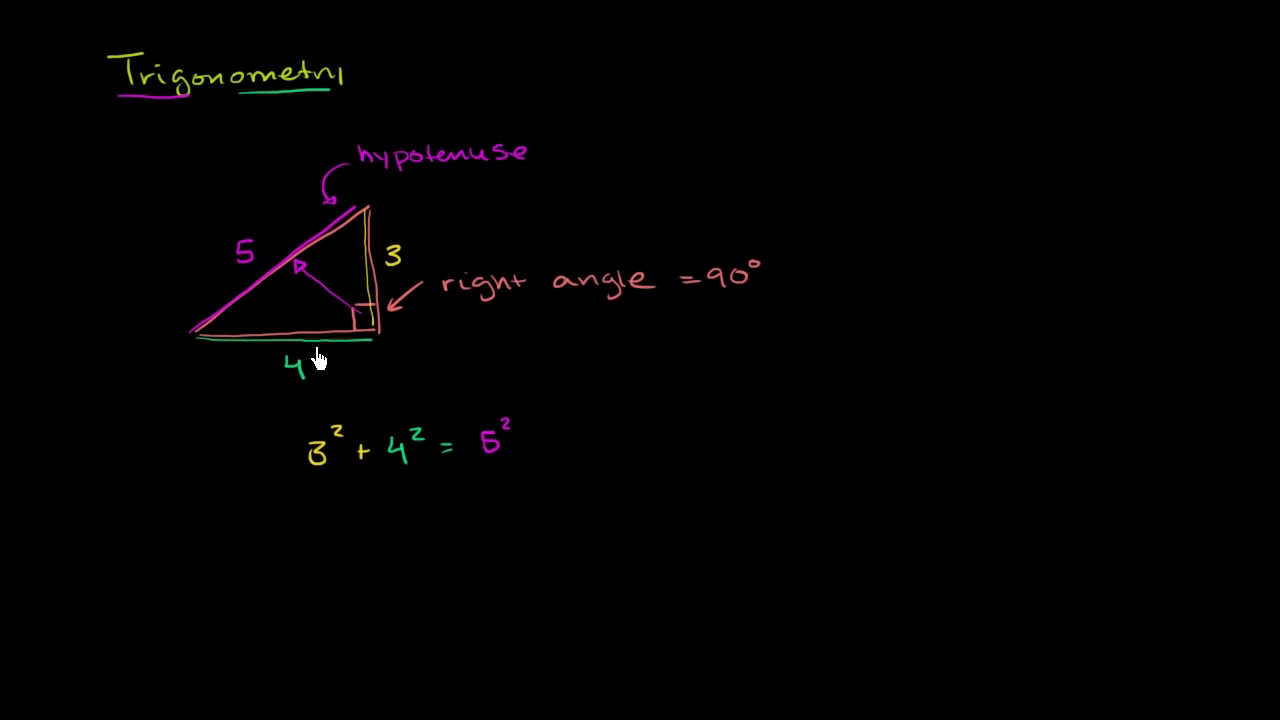 Trigonometry
hypotenuse
5
3
right angle = 90°
4
3² + 4² = 5²